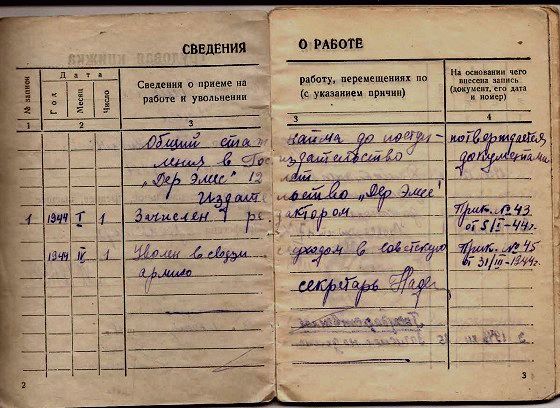 СВЕДЕНИЯ О РАБОТЕ
№ записи
Дата
Год
Месяц
Число
Сведения о приеме на
работе и увольнении
работу, перемещениях по
(с указанием причин)
На основании чего
внесена запись
(документ, его дата
и номер)
1 2 3 3 4
Общий стаж найма до поступ- потверждается
ления в Гос издательство документами
„Дер Эмес" 12 лет
Издательство „Дер Эмес"
1 1944 I 1 Зачислен редактором Прик. № 43
от 5/I-44г.
1944 IV 1 Уволен в связи с уходом в советскую Прик. № 45
армию от 31/III-1944г.
секретарь
2 3